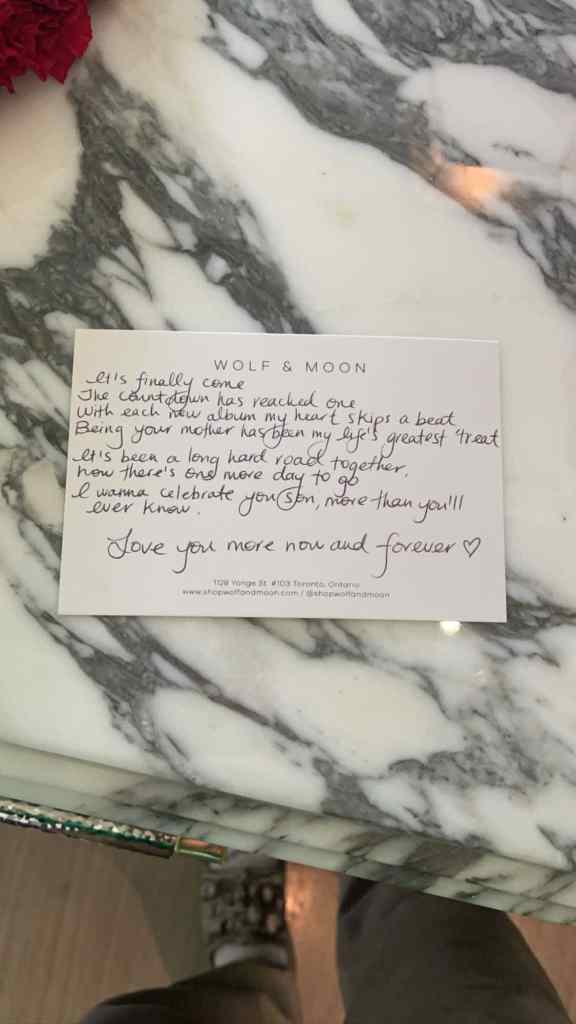 WOLF & MOON
It's finally come
The countdown has reached one
With each new album my heart skips a beat
Being your mother has been my life's greatest treat
It's been a long hard road together,
now there's one more day to go
I wanna celebrate you son, more than you'll
ever know.
Love you more now and forever ♡
1128 Yonge St. #103 Toronto, Ontario
www.shopwolfandmoon.com / @shopwolfandmoon